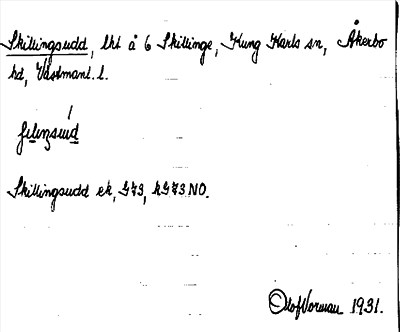 Skillingsudd, lht å 6 Skillinge, Kung Karls sn, Åkerbo
hd, Västmanl. l.
Skillingsudd ek, G73, kG73 NO.
Olof Norman 1931.